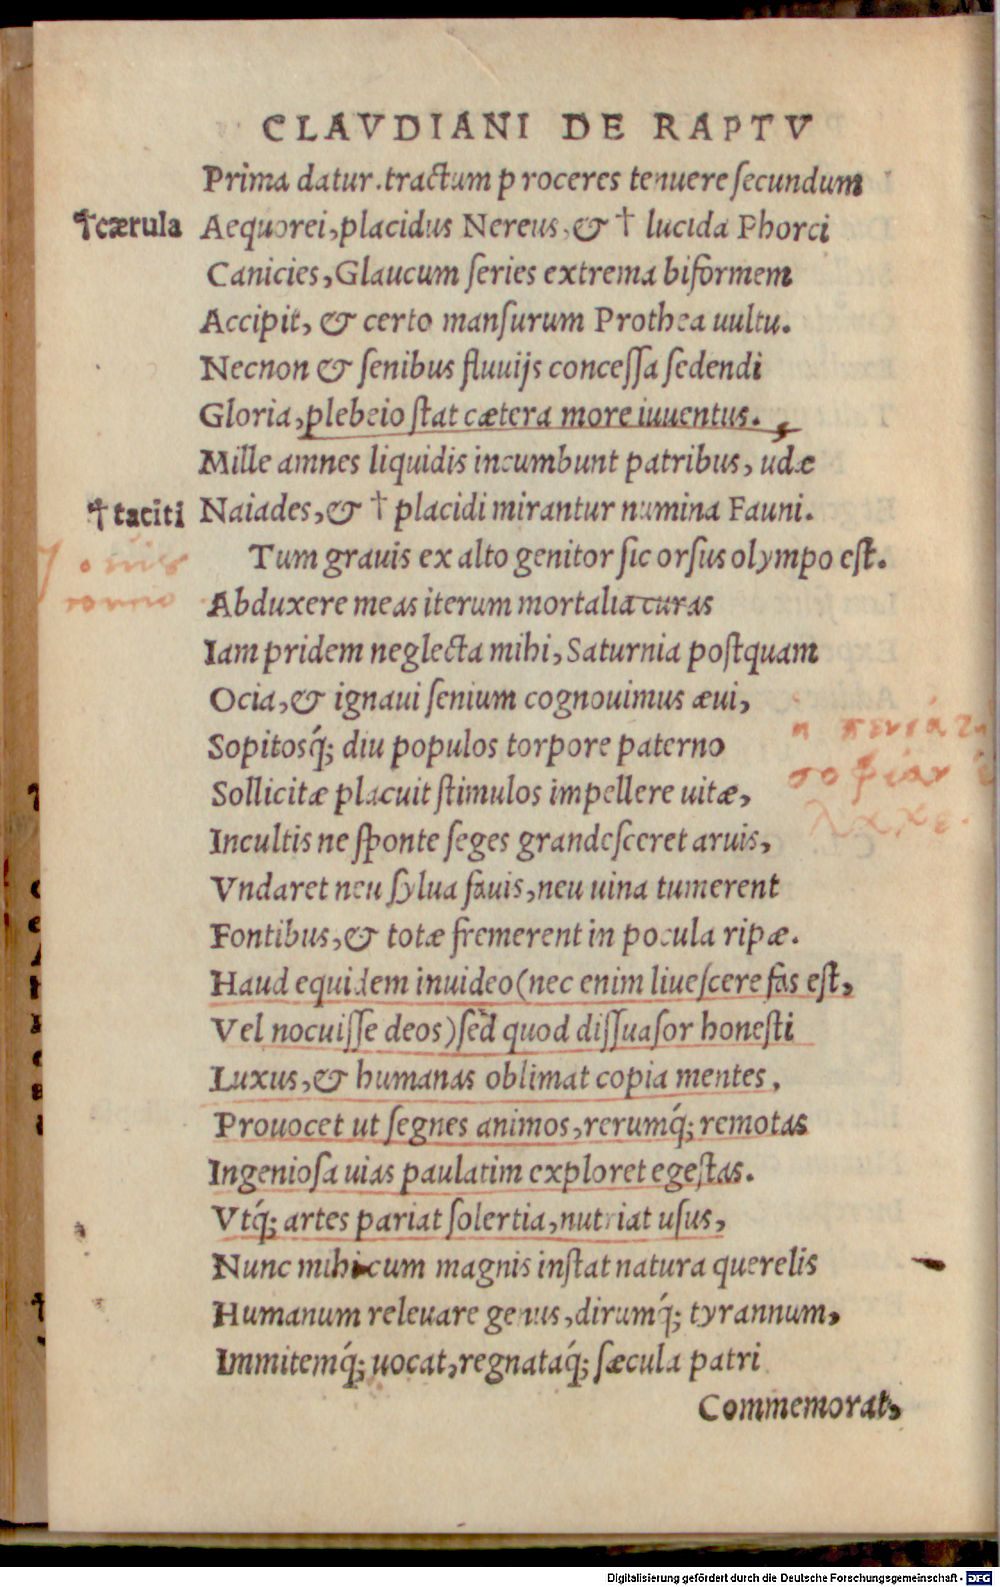 CLAVDIANI DE RAPTV
Prima datur.tractum proceres tenuere secundum
†cærula Aequorei,placidus Nereus,& † lucida Phorci
Canicies,Glaucum series extrema biformem
Accipit, & certo mansurum Prothea uultu.
Necnon & senibus fluuijs concessa sedendi
Gloria,plebeio stat cætera more iuuentus.
Mille amnes liquidis incumbunt patribus, udæ
†taciti Naiades,& † placidi mirantur numina Fauni.
Tum grauis ex alto genitor sic orsus olympo est.
Iouis
Abduxere meas iterum mortalia curas
Iam pridem neglecta mihi,Saturnia postquam
Ocia,& ignaui senium cognouimus æui,
Sopitosq́; diu populos torpore paterno
Sollicitæ placuit stimulos impellere uitæ,
Incultis ne sponte seges grandesceret aruis,
Vndaret neu sylua fauis,neu uina tumerent
Fontibus,& totæ fremerent in pocula ripæ.
Haud equidem inuideo(nec enim liuescere fas est,
Vel nocuisse deos)sed quod dissuasor honesti
Luxus,& humanas oblimat copia mentes,
Prouocet ut segnes animos,rerumq́; remotas
Ingeniosa uias paulatim exploret egestas.
Vtq́; artes pariat solertia,nutriat usus,
Nunc mihi cum magnis instat natura querelis
Humanum releuare genus,dirumq́; tyrannum,
Immitemq́; uocat,regnataq́; sæcula patri
Commemorat,
Digitalisierung gefördert durch die Deutsche Forschungsgemeinschaft - DFG